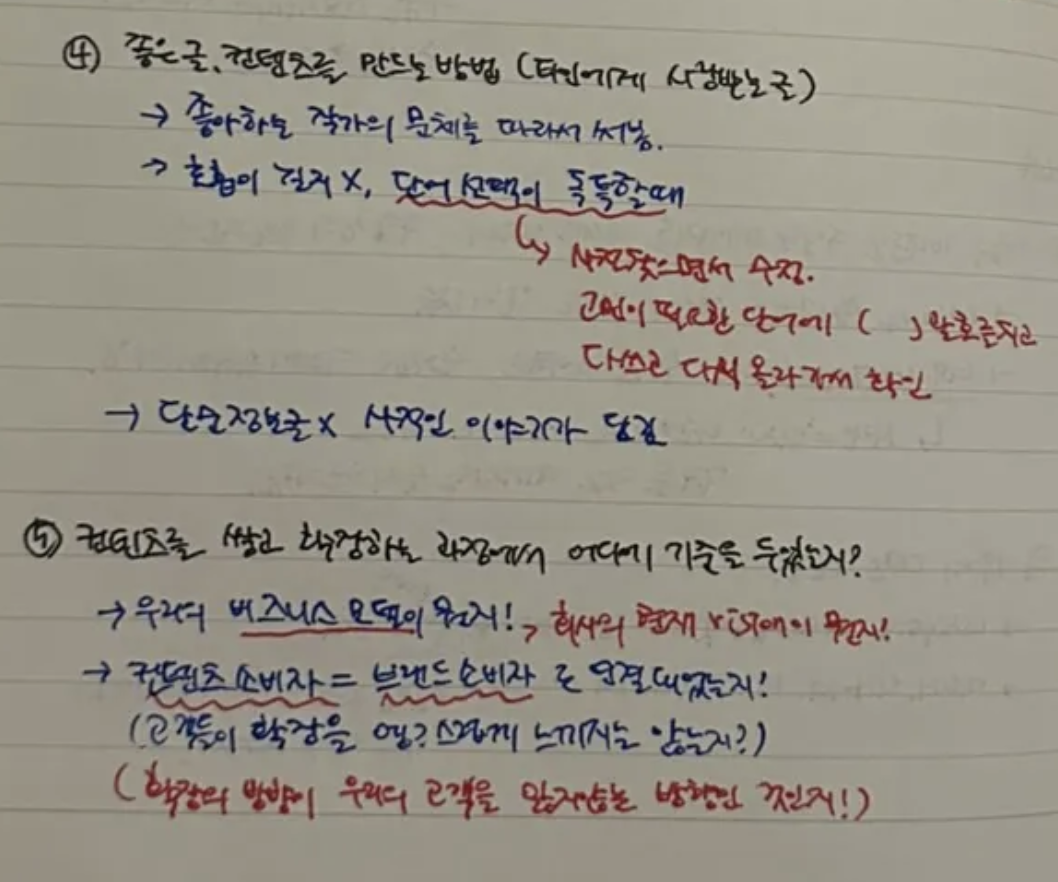 ④ 좋은글, 컨텐츠를 만드는 방법 (타인에게 사랑받는 글)
→ 좋아하는 작가의 문체를 따라서 써봄.
→ 호흡이 길지 X, 단어 선택이 독특할때
↳ 사전찾으면서 수정.
고민이 필요한 단어에 ( ) 괄호쳐두고
다쓰고 다시 올라가서 확인
→ 단순정보글 X 사적인 이야기가 담김
⑤ 컨텐츠를 쌓고 확장하는 과정에서 어디에 기준을 두었는지?
→ 우리의 비즈니스 모델이 뭔지! → 회사의 현재 vision이 뭔지!
→ 컨텐츠 소비자 = 브랜드 소비자 로 연결되었는지!
(고객들이 확장을 엥? 스럽게 느끼지는 않는지?)
(확장의 방향이 우리의 고객을 잃지않는 방향인 것인지!)